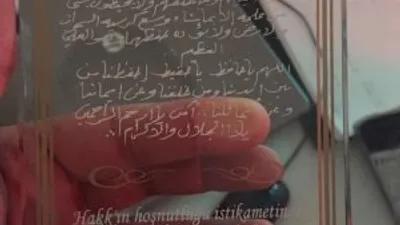 من علمه إلا بما شاء وسع كرسيه السموات
والأرض ولا يؤده حفظهما وهو العلي
العظيم
اللهم يا حافظ يا حفيظ احفظنا من
بين أيدينا ومن خلفنا وعن أيماننا
وعن شمائلنا.. آمين يا أرحم الراحمين
يا ذا الجلال والإكرام..
Hakk'ın hoşnutluğu istikametin